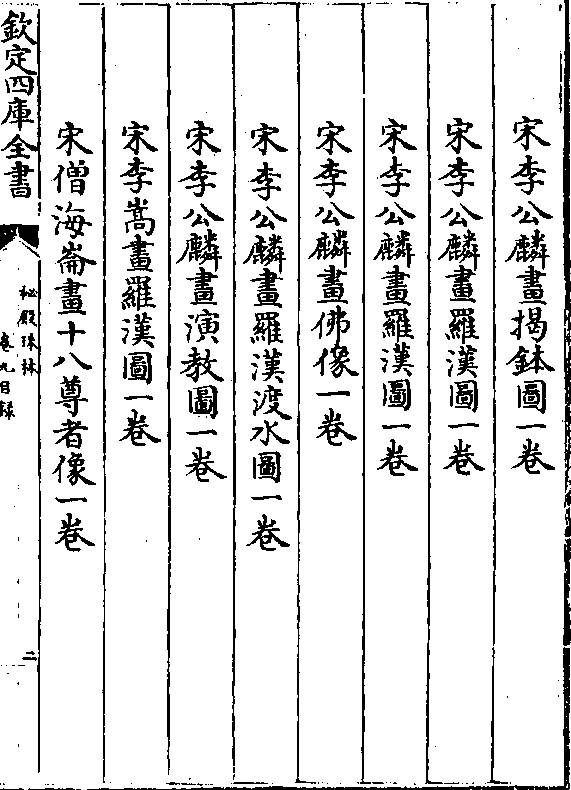 宋李公麟畫揭鉢圖一卷
宋李公麟畫羅漢圖一卷
宋李公麟畫羅漢圖一卷
宋李公麟畫佛像一卷
宋李公麟畫羅漢渡水圖一卷
宋李公麟畫演教圖一卷
宋李嵩畫羅漢圖一卷
宋僧海崙畫十八尊者像一卷
欽定四庫全書
秘殿珠林
卷九目録
二